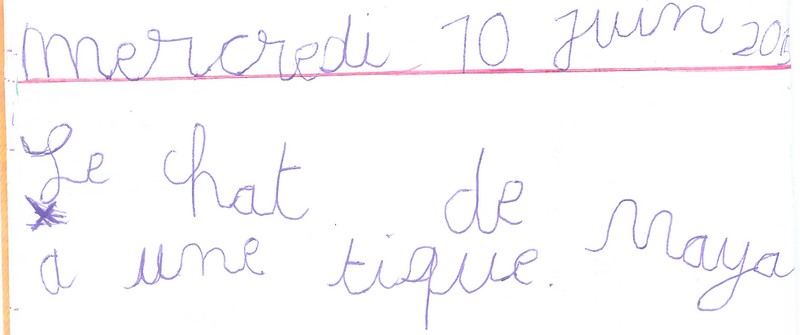 mercredi 10 juin
Le chat de Maya
a une tique.